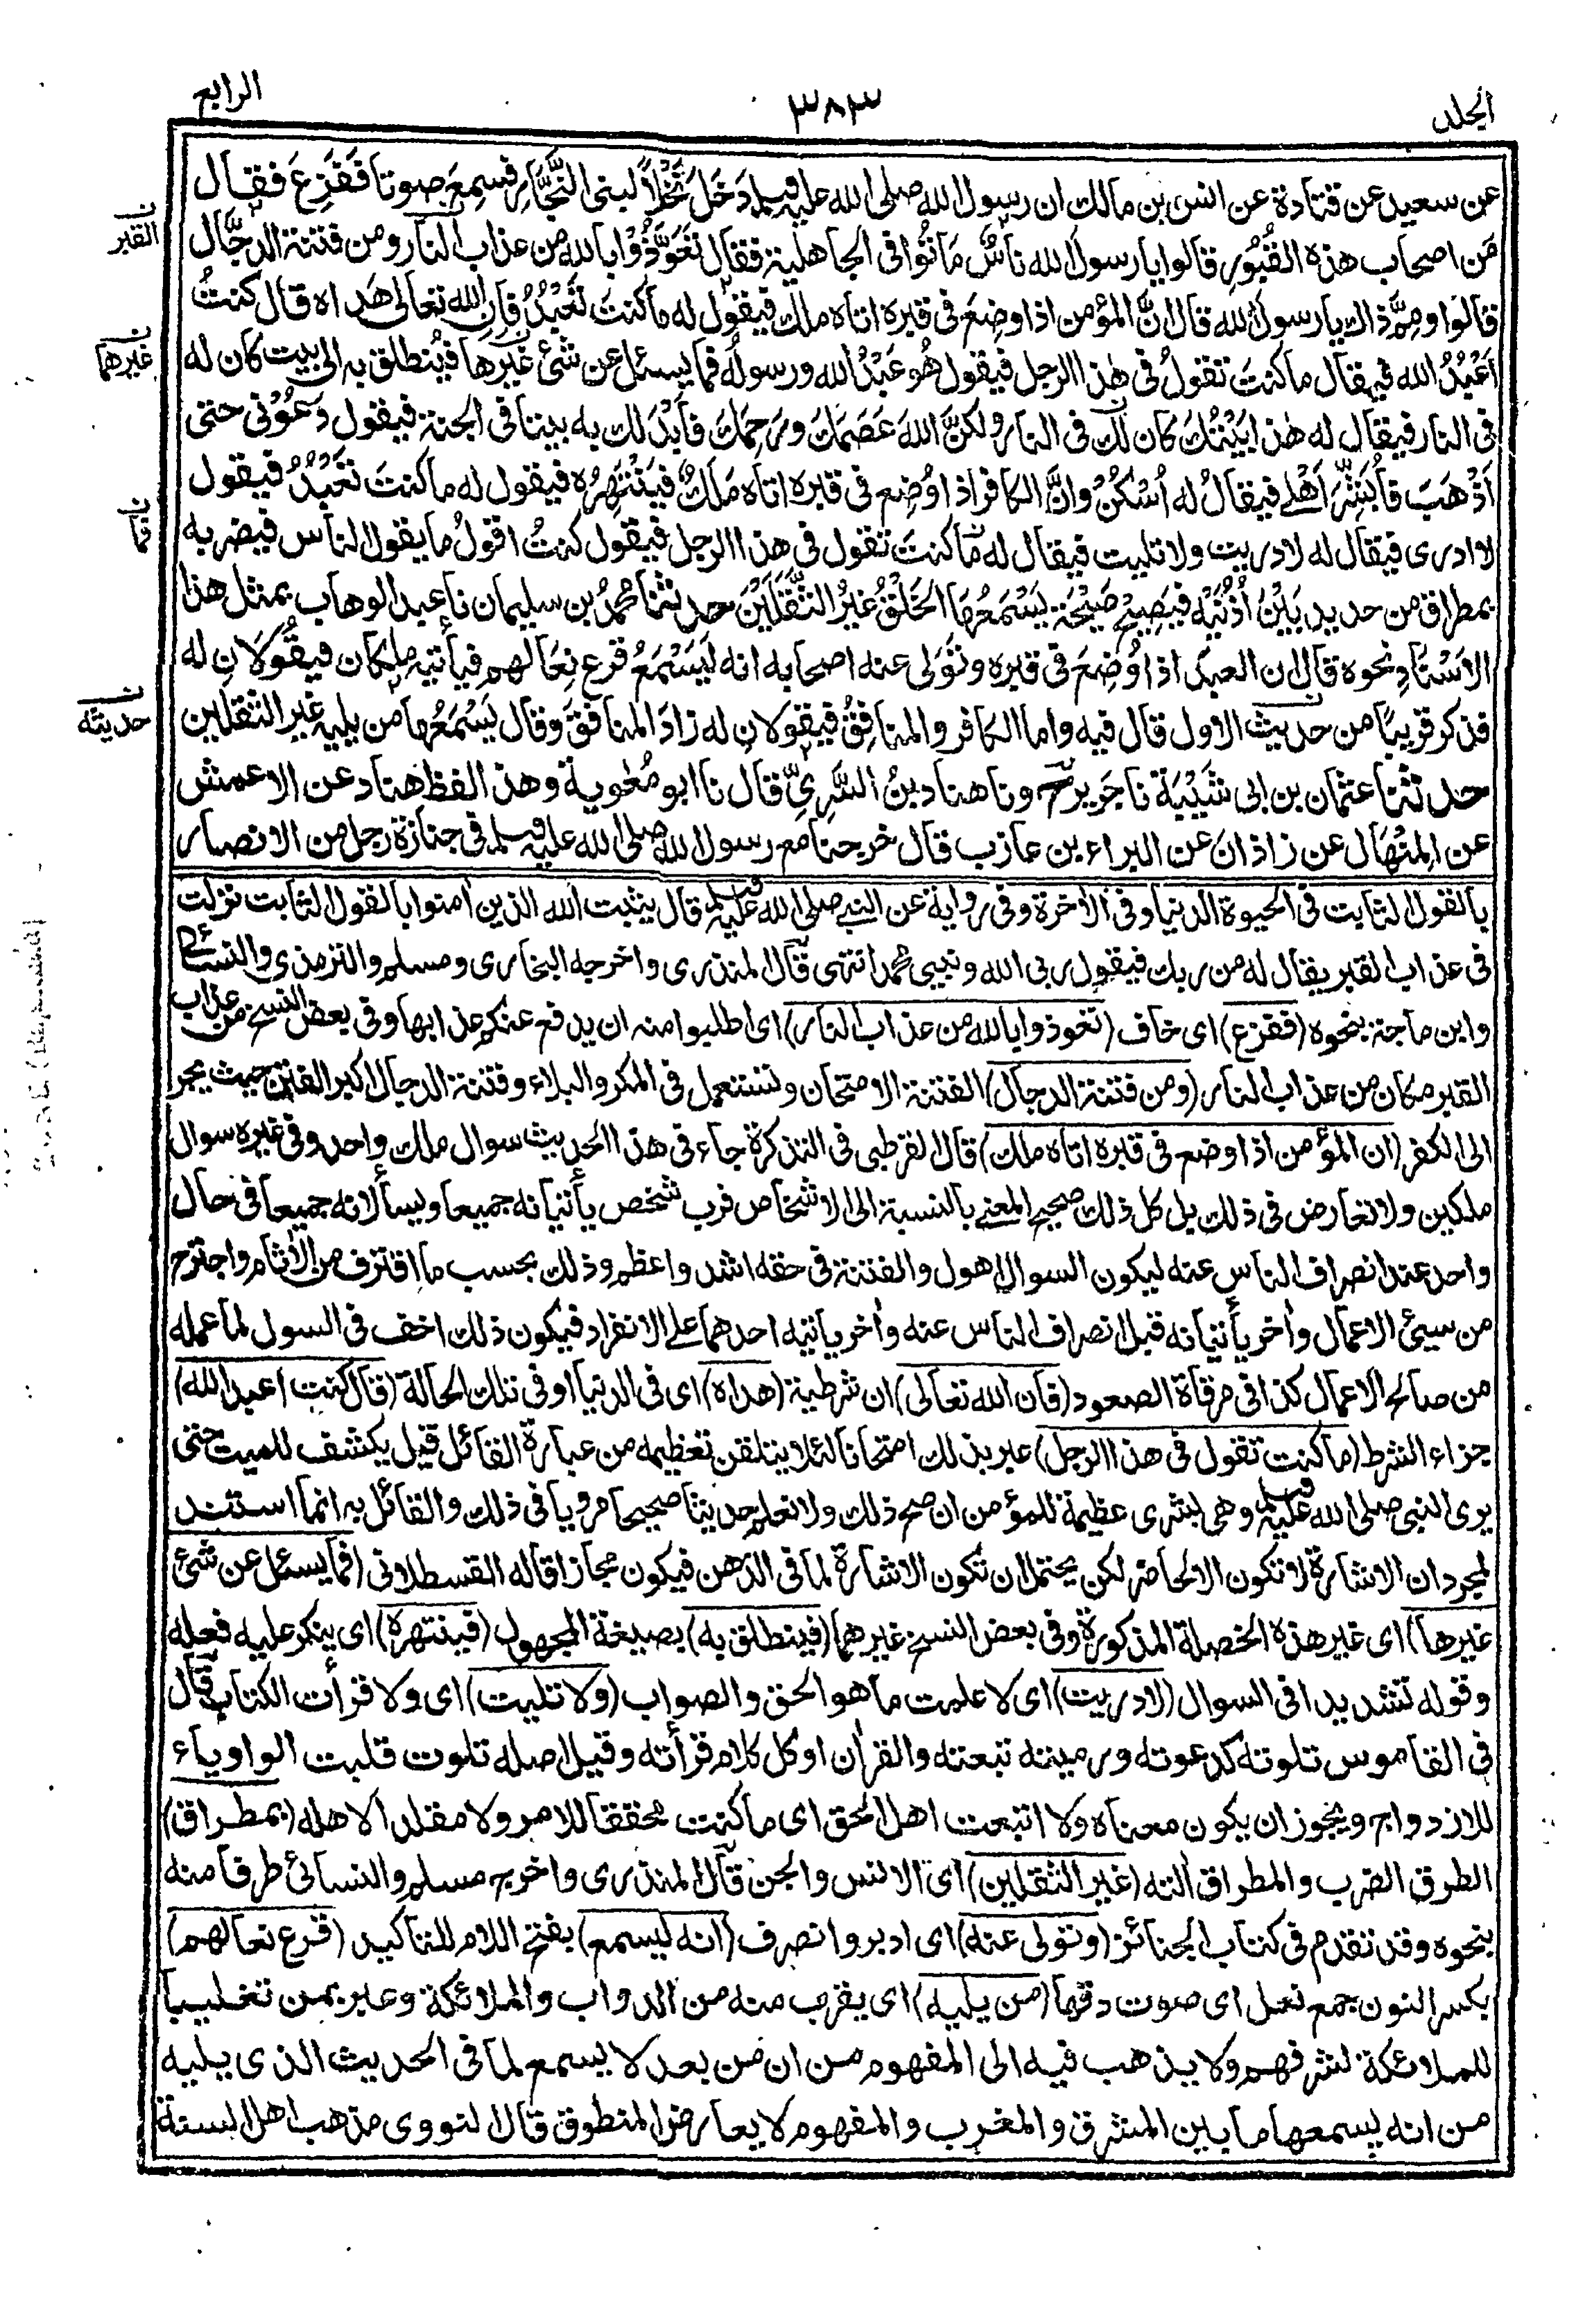 الجلد
٣٨٣
الرابع
عن سعيد عن قتادة عن انس بن مالك ان رسول الله صلى الله عليه وسلم دَخَلَ نَخْلًا لبنى النَّجَّارِ فسمِعَ صوتا فَفَزِعَ فقال
مَن اصحاب هذه القُبُورِ قالوا يا رسول الله ناسٌ مَاتُوا فى الجاهلية فقال تَعَوَّذُوْا بالله من عذاب النار ومن فتنة الدجَّال
قالوا ومِمَّ ذاك يا رسول الله قال انَّ المؤمن اذا وضِعَ فى قبره اتاه ملك فيقول له ما كنتَ تَعْبُدُ فان الله تعالى هَداه قال كنتُ
اَعْبُدُ الله فيقال ما كنتَ تقولُ فى هذا الرجل فيقول هُو عَبْدُ الله ورسولُه فما يسئل عن شئ غَيرِها فيُنطلق به الى بيت كان له
فى النار فيقال له هذا بَيْتُكَ كان لك فى النار ولكنَّ اللهَ عَصَمَكَ ورَحِمَكَ فاَبْدَلك به بيتا فى الجنة فيقول دَعُوْنى حتى
اَذْهَبَ فاُبَشِّرَ اَهْلے فيقالُ له اُسْكُنْ وانَّ الكافر اذا وُضِع فى قبره اتاه مَلَكٌ فيَنْتَهِرُه فيقول له ما كنتَ تَعْبُدُ فيقول
لا ادرى فيقال له لا دريت ولا تليت فيقال له ما كنتَ تقول فى هذا الرجل فيقول كنتُ اقولُ ما يقول الناس فيضربه
بمطراق من حديد بَيْنَ اُذُنَيْه فيَصِيْحُ صَيْحَة يَسْمَعُها الخَلْقُ غيرُ الثَّقَلَيْنَ حدثنا محمدُ بن سليمان نا عبد الوهاب بمثل هذا
الاسْنادِ نحوه قال ان العبدَ اذا وُضِعَ فى قبره وتَوَلى عنه اصحابه انه لَيَسْمَعُ قَرعَ نِعَالهم فيأتيه ملكان فيقُولانِ له
فذكر قريبًا من حديث الاول قال فيه واما الكافر والمنافِقُ فيقولانِ له زادَ المنافقَ وقال يَسْمَعُها من يليه غير الثقلين
حدثنا عثمان بن ابى شَيْبَةَ نا جَرير ح ونا هناد بنُ السَّرِىِّ قال نا ابو مُعٰوية وهذا لفظ هناد عن الاعمش
عن المِنْهال عن زاذان عن البراء بن عازب قال خرجنا مع رسول الله صلى الله عليه وسلم فى جنازة رجل من الانصار
القبر
غيرهما
فما
حديثه
بالقول الثابت فى الحيوة الدنيا وفى الاخرة وفى رواية عن النبے صلى الله عليه وسلم قال يثبت الله الذين اٰمنوا بالقول الثابت نزلت
فى عذاب القبر يقال له من ربك فيقول ربى الله ونبيى محمد انتهى قال المنذرى واخرجه البخارى ومسلم والترمذى والنسائى
وابن ماجة بنحوه (ففزع) اى خاف (تعوذوا بالله من عذاب النار) اى اطلبوا منه ان يدفع عنكم عذابها وفى بعض النسخ من عذاب
القبر مكان من عذاب النار (ومن فتنة الدجال) الفتنة الامتحان وتستعمل فى المكر والبلاء وفتنة الدجال اكبر الفتن حيث يجر
الى الكفر (ان المؤمن اذا وضع فى قبره اتاه ملك) قال القرطبى فى التذكرة جاء فى هذا الحديث سوال ملك واحد وفى غيره سوال
ملكين ولا تعارض فى ذلك بل كل ذلك صحيح المعنے بالنسبة الى الاشخاص فرب شخص يأتيانه جميعا ويسألانه جميعا فى حال
واحد عند انصراف الناس عنه ليكون السوال اهول والفتنة فى حقه اشد واعظم وذلك بحسب ما اقترف من الاٰثام واجترح
من سيئ الاعمال واٰخر يأتيانه قبل انصراف الناس عنه واٰخر ياتيه احدهما على الانفراد فيكون ذلك اخف فى السول لما عمله
من صالح الاعمال كذا فى مرقاة الصعود (فان الله تعالى) ان شرطية (هداه) اى فى الدنيا او فى تلك الحالة (قال كنت اعبد الله)
جزاء الشرط (ما كنت تقول فى هذا الرجل) عبر بذلك امتحانا لئلا يتلقن تعظيمه من عبارة القائل قيل يكشف للميت حتى
يرى النبى صلى الله عليه وسلم وهى بشرى عظيمة للمؤمن ان صح ذلك ولا نعلم حديثا صحيحا مرويا فى ذلك والقائل به انما استند
لمجرد ان الاشارة لا تكون الا لحاضر لكن يحتمل ان تكون الاشارة لما فى الذهن فيكون مجازا قاله القسطلانى (فما يسئل عن شئ
غيرها) اى غير هذه الخصلة المذكورة وفى بعض النسخ غيرهما (فينطلق به) بصيغة المجهول (فينتهره) اى ينكر عليه فعله
وقوله تشديدا فى السوال (لا دريت) اى لا علمت ما هو الحق والصواب (ولا تليت) اى ولا قرأت الكتاب قال
فى القاموس تلوته كدعوته ورميته تبعته والقراٰن او كل كلام قرأته وقيل اصله تلوت قلبت الواو ياء
للازدواج ويجوز ان يكون معناه ولا اتبعت اهل الحق اى ما كنت محققا للامر ولا مقلدا لاهله (بمطراق)
الطرق الضرب والمطراق اٰلته (غير الثقلين) اى الانس والجن قال المنذرى واخرجه مسلم والنسائى طرفا منه
بنحوه وقد تقدم فى كتاب الجنائز (وتولى عنه) اى ادبر وانصرف (انه ليسمع) بفتح اللام للتاكيد (قرع نعالهم)
بكسر النون جمع نعل اى صوت دقها (من يليه) اى يقرب منه من الدواب والملائكة وعبر بمن تغليبا
للملائكة لشرفهم ولا يذهب فيه الى المفهوم من ان من بعد لا يسمع لما فى الحديث الذى يليه
من انه يسمعها ما بين المشرق والمغرب والمفهوم لا يعارض المنطوق قال النووى مذهب اهل السنة